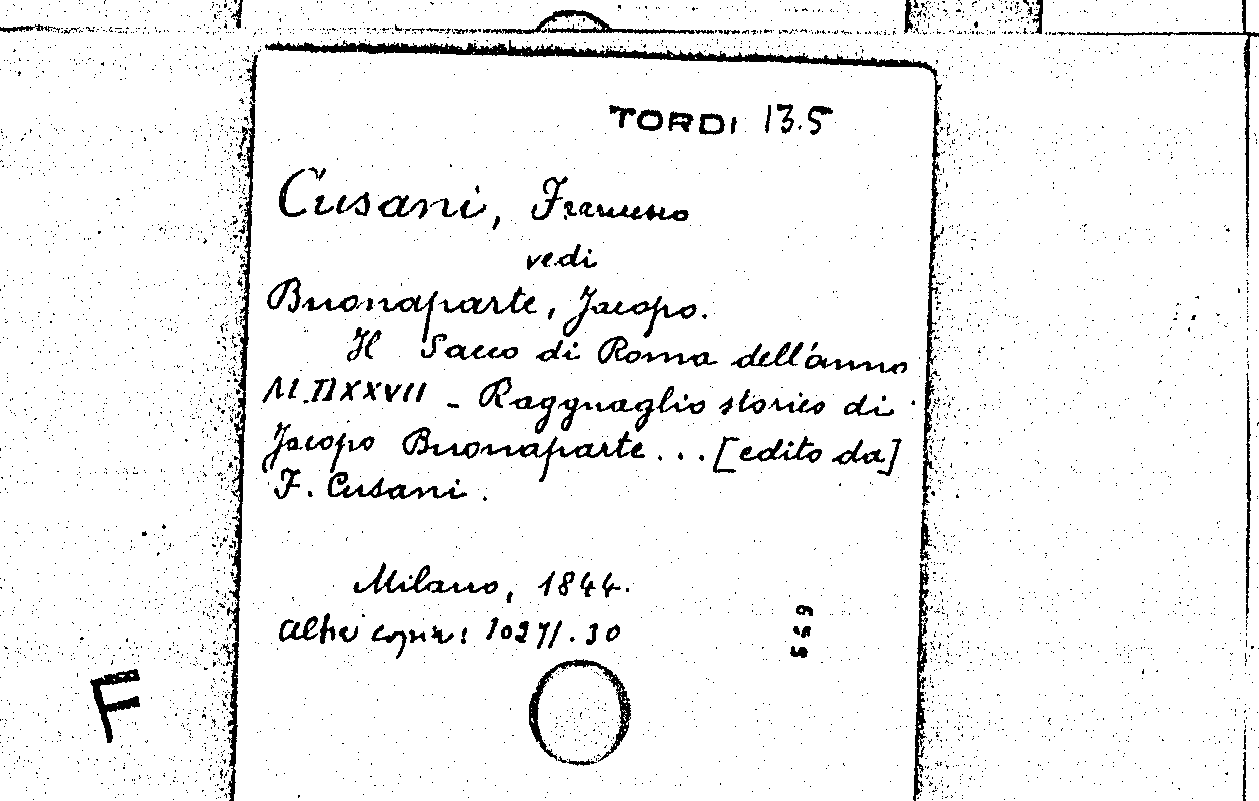 TORDI 13.5
Cusani, Francesco
vedi
Buonaparte, Jacopo.
Il Sacco di Roma dell'anno
M.DXXVII - Ragguaglio storico di
Jacopo Buonaparte... [edito da]
F. Cusani.
Milano, 1844.
Altre copie: 10271.30
559
F